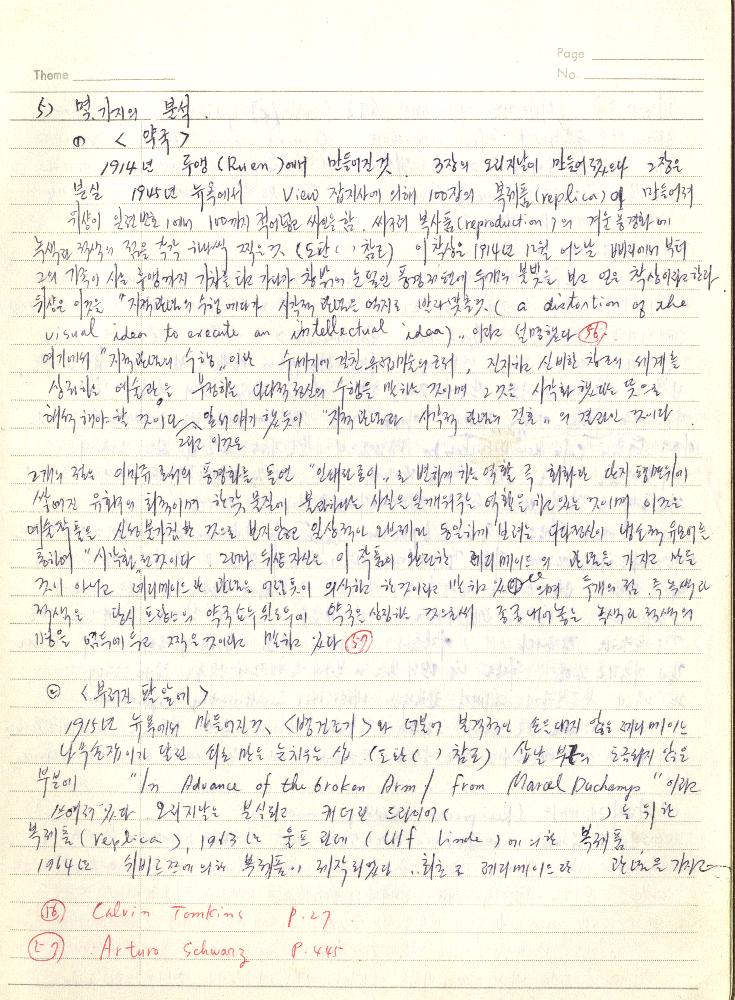 Page
Theme
No.
5) 몇가지의 분석.
① <약국>
1914년 루앙(Ruen)에서 만들어진것. 3장의 오리지날이 만들어졌으나 2장은
분실 1945년 뉴욕에서 View 잡지사에 의해 100장의 복제품(replica)이 만들어져
뒤샹이 일련번호 1에서 100까지 적어넣고 싸인을 함. 싸구려 복사품(reproduction)의 겨울풍경화에
녹색과 적색의 점을 각각 하나씩 찍은것 (도판( ) 참조) 이 착상은 1914년 12월 어느날 빠리에서 부터
그의 가족이 사는 루앙까지 기차를 타고 가다가 창밖의 눈덮인 풍경 저편에 두개의 불빛을 보고 얻은 착상이라고 한다.
뒤샹은 이것을 "지적관념의 수행에다가 시각적 관념을 억지로 받아맞춘것. (a distortion of the
visual idea to execute an intellectual idea)" 이라고 설명했다 (56).
여기에서 "지적관념의 수행"이란 수세기에 걸친 유화미술의 , 진지하고 신비한 창조의 세계를
상징하는 예술관을 부정하는 다다적 정신의 수행을 말하는 것이며 그것은 시각화 했다는 뜻으로
해석해야 할 것이다 앞서 얘기했듯이 "지적관념과 시각적 관념의 결혼"의 결과인 것이다.
그리고 이것은
2개의 점은 이미쥬로서의 풍경화를 돌연 "인쇄된종이"로 변하게 하는 역할 즉 회화란 단지 평면위에
쌓여진 유화구의 퇴적이며 한갓 물질에 불과하다는 사실을 일깨워주는 역할을 하고있는 것이며 이것은
예술작품을 신성불가침한 것으로 보지않고 일상적인 오브제와 동일하게 보려는 다다정신이 냉소적 유모어를
통하여 "시각화"된것이다 그러나 뒤샹 자신은 이 작품이 완전한 레디메이드의 관념을 가지고 만든
것이 아니고 레디메이드란 관념을 어렴풋이 의식하고 한것이라고 말하고 있으며 두개의 점 즉 녹색과
적색은 당시 프랑스의 약국쇼우윈도우에 약국을 상징하는 것으로써 녹색과 적색의
병을 염두에 두고 찍은것이라고 말하고 있다 (57)
② <부러진 팔앞에>
1915년 뉴욕에서 만들어진것, <병건조기>와 더불어 본격적인 손을대지 않은 레디메이드
나무손잡이가 달린 쇠로 만든 눈치우는 삽. (도판( ) 참조) 삽날 도금되지 않은
부분에 "In Advance of the broken Arm / from Marcel Duchamp" 이라고
쓰여져 있다. 오리지날은 분실되고 캐더린 드라이어( )를 위한
복제품(replica), 1963년 울프 린데(Ulf Linde)에 의한 복제품,
1964년 쉬바르쯔에 의해 복제품이 제작되었다. 최초로 레디메이드란 관념을 가지고
(56) Calvin Tomkins P.27
(57) Arturo Schwarz P.445.